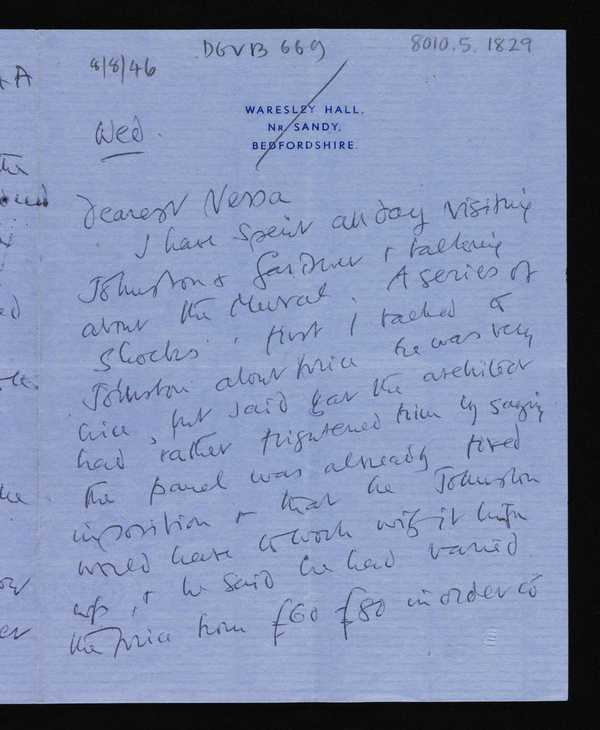 8/8/46
DGVB 669
8010.5.1829
WARESLEY HALL,
NR. SANDY,
BEDFORDSHIRE.
Wed.
Dearest Nessa
I have spent all day visiting
Johnston & Gardner & talking
about the Mural. A series of
shocks. first I talked to
Johnston about price he was very
nice, but said that the architect
had rather frightened him by saying
the panel was already fixed
in position & that he Johnston
would have to work with it
up, & he said he had varied
the price from £60 £80 in order to
+ A
the
ed
the
er